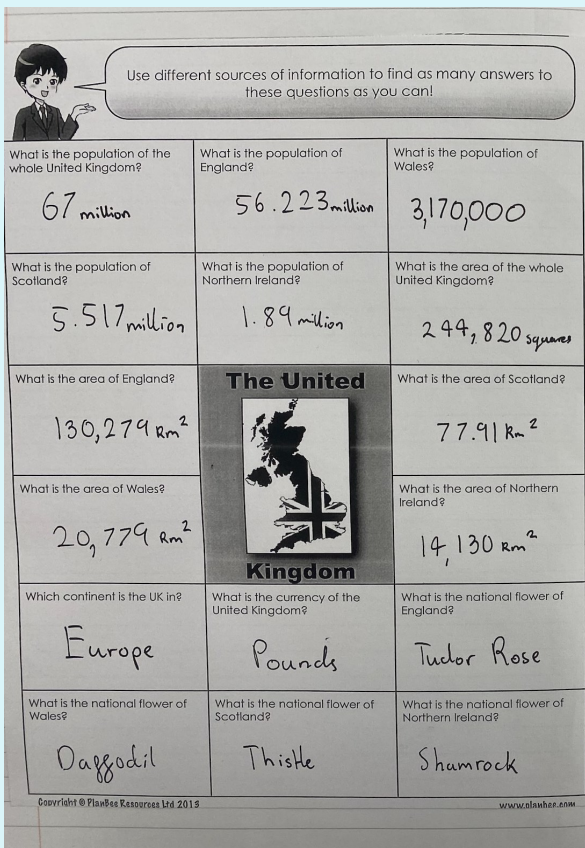 Use different sources of information to find as many answers to
these questions as you can!
What is the population of the
whole United Kingdom?
67 million
What is the population of
England?
56.223 million
What is the population of
Wales?
3,170,000
What is the population of
Scotland?
5.517 million
What is the population of
Northern Ireland?
1.89 million
What is the area of the whole
United Kingdom?
244,820 squares
What is the area of England?
130,279 km²
The United
Kingdom
What is the area of Scotland?
77.91 km²
What is the area of Wales?
20,779 km²
What is the area of Northern
Ireland?
14,130 km²
Which continent is the UK in?
Europe
What is the currency of the
United Kingdom?
Pounds
What is the national flower of
England?
Tudor Rose
What is the national flower of
Wales?
Daffodil
What is the national flower of
Scotland?
Thistle
What is the national flower of
Northern Ireland?
Shamrock
Copyright © PlanBee Resources Ltd 2015
www.planbee.com